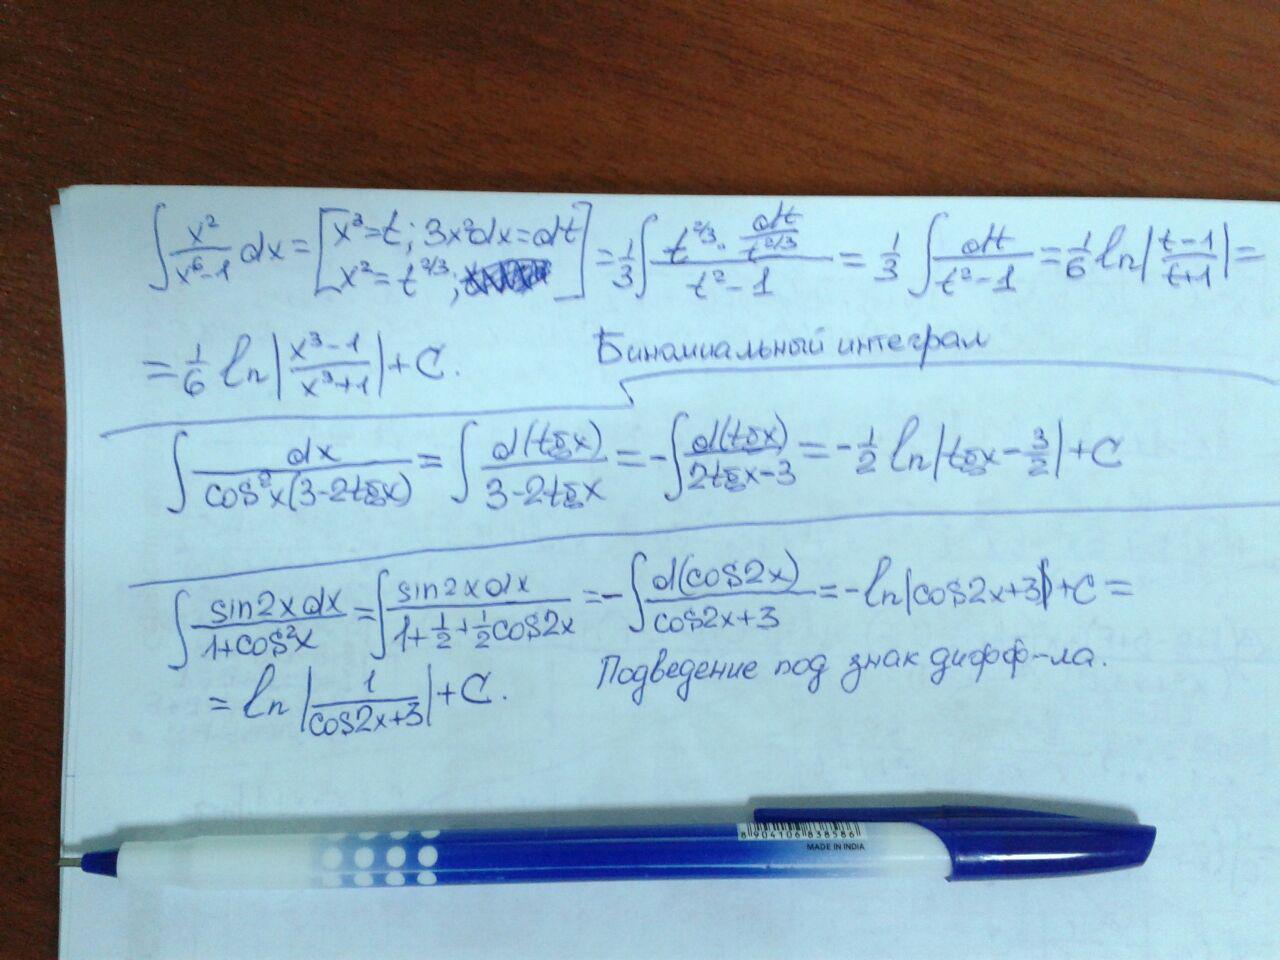 ∫ x²/(x⁶-1) dx = [x³=t; 3x²dx=dt x²=t^(2/3);] = 1/3 ∫ (t^(2/3) · dt/t^(2/3))/(t²-1) = 1/3 ∫ dt/(t²-1) = 1/6 ln|(t-1)/(t+1)| =
= 1/6 ln|(x³-1)/(x³+1)| + C.
Биномиальный интеграл
∫ dx/(cos²x(3-2tgx)) = ∫ d(tgx)/(3-2tgx) = -∫ d(tgx)/(2tgx-3) = -1/2 ln|tgx - 3/2| + C
∫ sin2xdx/(1+cos²x) = ∫ sin2xdx/(1+1/2+1/2cos2x) = -∫ d(cos2x)/(cos2x+3) = -ln|cos2x+3| + C =
= ln|1/(cos2x+3)| + C.
Подведение под знак дифф-ла.
8 904106 838586
MADE IN INDIA